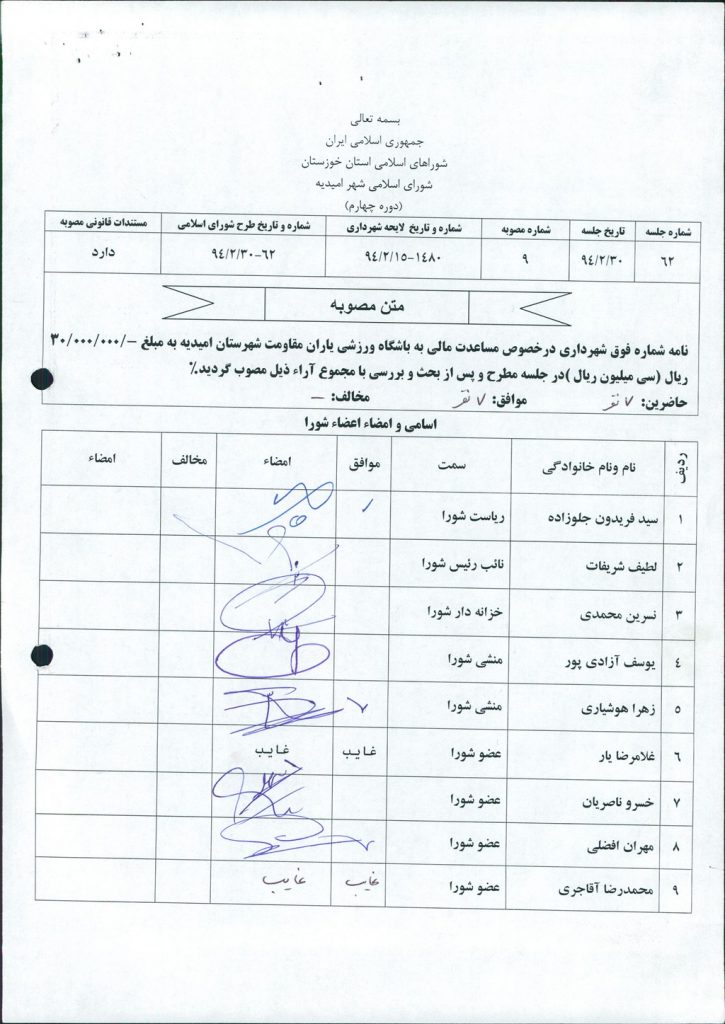 بسمه تعالی
جمهوری اسلامی ایران
شوراهای اسلامی استان خوزستان
شورای اسلامی شهر امیدیه
(دوره چهارم)
شماره جلسه تاریخ جلسه شماره مصوبه شماره و تاریخ لایحه شهرداری شماره و تاریخ طرح شورای اسلامی مستندات قانونی مصوبه
۶۲ ۹٤/۲/۳۰ ۹ ۹٤/۲/۱۵-۱٤۸۰ ۹٤/۲/۳۰-۶۲ دارد
متن مصوبه
نامه شماره فوق شهرداری درخصوص مساعدت مالی به باشگاه ورزشی یاران مقاومت شهرستان امیدیه به مبلغ -/۳۰/۰۰۰/۰۰۰
ریال (سی میلیون ریال )در جلسه مطرح و پس از بحث و بررسی با مجموع آراء ذیل مصوب گردید.٪
حاضرین: ۷ نفر موافق: ۷ نفر مخالف: —
اسامی و امضاء اعضاء شورا
ردیف نام ونام خانوادگی سمت موافق امضاء مخالف امضاء
۱ سید فریدون جلوزاده ریاست شورا
۲ لطیف شریفات نائب رئیس شورا
۳ نسرین محمدی خزانه دار شورا
٤ یوسف آزادی پور منشی شورا
۵ زهرا هوشیاری منشی شورا
۶ غلامرضا یار عضو شورا غایب غایب
۷ خسرو ناصریان عضو شورا
۸ مهران افضلی عضو شورا
۹ محمدرضا آقاجری عضو شورا غایب غایب